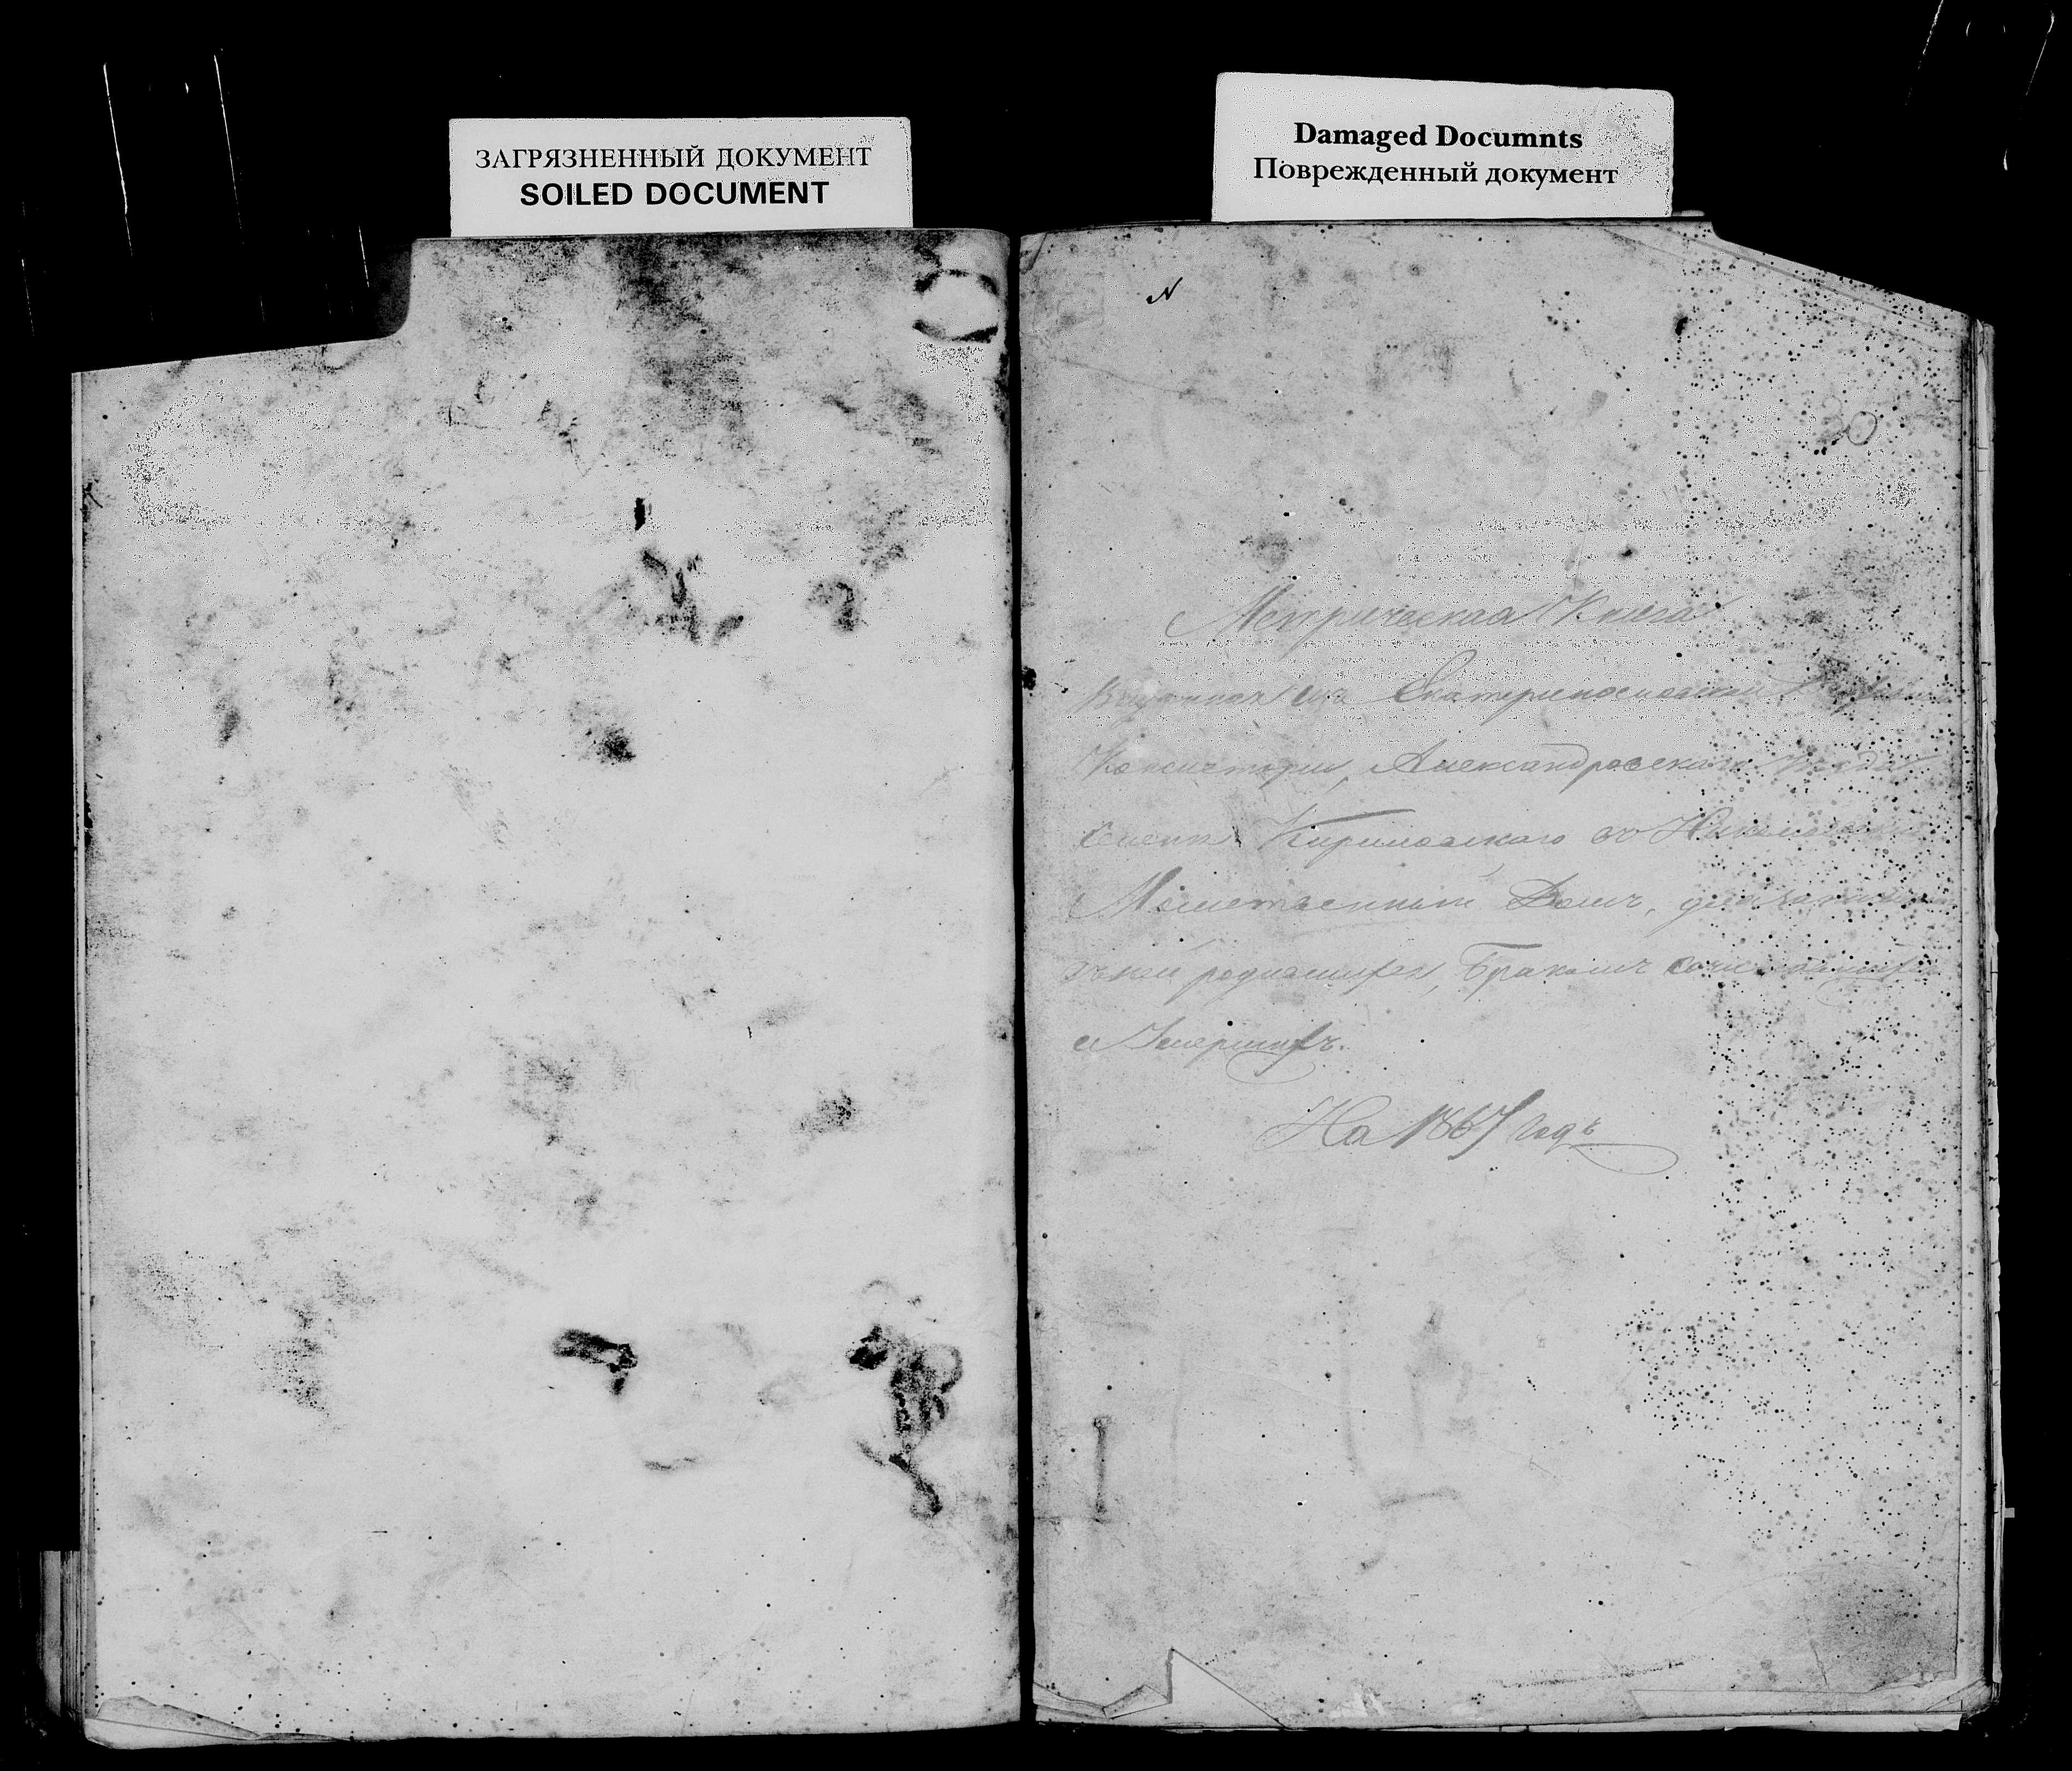 ЗАГРЯЗНЕННЫЙ ДОКУМЕНТ
SOILED DOCUMENT
Damaged Documnts
Поврежденный документ
N
30
Метрическая Книга
Выданная изъ Екатеринославской
Консисторіи, Александровскаго Уезда
Кириловскаго во Николаевскій
Молитвенный Домъ, для записки
въ ней родившихся, Бракомъ Сочетавшихся
и Умершихъ.
На 1867 годъ